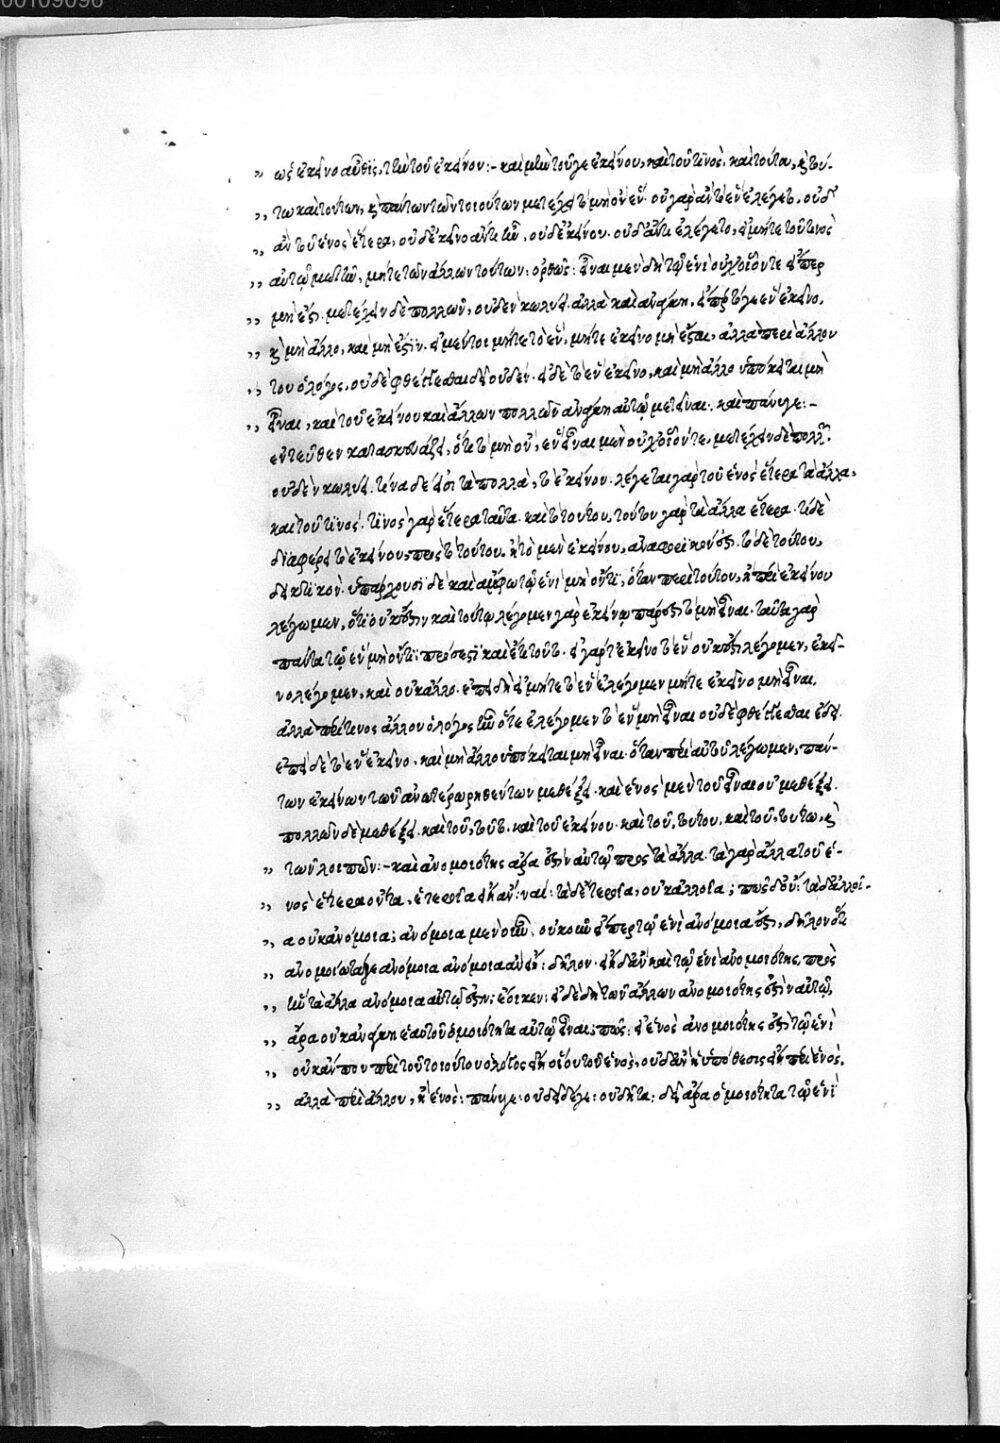 00109098
„ ὡς ἐκεῖνο αὖθις, τί ἦν τοῦ ἐκείνου :- καὶ μὴν τοῦ γε ἐκείνου, καὶ τοῦ τινὸς, καὶ τούτου, καὶ τού-
„ τω καὶ τούτων, καὶ πάντων τῶν τοιούτων μετέχει τὸ μὴ ὂν ἕν· οὐ γὰρ ἂν τὸ ἓν ἐλέγετο, οὐδ'
„ ἂν τοῦ ἑνὸς ἕτερα, οὐδ' ἐκείνῳ ἄν τι ἦν, οὐδ' ἐκείνου· οὐδ' ἄν τι ἐλέγετο, εἰ μήτε τοῦ τινὸς
„ αὐτῷ μετῆν, μήτε τῶν ἄλλων τούτων : ὀρθῶς : εἶναι μὲν δὴ τῷ ἑνὶ οὐχ οἷόν τε εἴπερ
„ μὴ ἔστι· μετέχειν δὲ πολλῶν, οὐδὲν κωλύει· ἀλλὰ καὶ ἀνάγκη, εἴπερ τό γε ἓν ἐκεῖνο,
„ καὶ μὴ ἄλλο, καὶ μὴ ἔστιν· εἰ μέντοι μήτε τὸ ἓν, μήτε ἐκεῖνο μὴ ἔσται, ἀλλὰ περὶ ἄλλου
„ του ὁ λόγος, οὐδὲ φθέγγεσθαι δεῖ οὐδέν· εἰ δὲ τὸ ἓν ἐκεῖνο, καὶ μὴ ἄλλο ὑπόκειται μὴ
„ εἶναι, καὶ τοῦ ἐκείνου καὶ ἄλλων πολλῶν ἀνάγκη αὐτῷ μετεῖναι : καὶ πάνυ γε :-
ἐντεῦθεν κατασκευάζει, ὅτι τὸ μὴ ὂν, ἓν εἶναι μὲν οὐχ οἷόν τε, μετέχειν δὲ πολλῶν
οὐδὲν κωλύει· τίνα δέ εἰσι τὰ πολλὰ, τὸ ἐκείνου· λέγεται γὰρ τοῦ ἑνὸς ἕτερα τὰ ἄλλα,
καὶ τοῦ τινός· τινὸς γὰρ ἕτερα ταῦτα· καὶ τὸ τούτου, τούτου γὰρ τὰ ἄλλα ἕτερα· τί δὲ
διαφέρει τὸ ἐκείνου, πρὸς τὸ τούτου, ἢ τὸ μὲν ἐκείνου, ἀναφορικόν ἐστι· τὸ δὲ τούτου,
δεικτικόν· ὑπάρχουσι δὲ καὶ ἄμφω τῷ ἑνὶ μὴ ὄντι, ὅταν περὶ τούτου, ἢ περὶ ἐκείνου
λέγωμεν, ὅτι οὐκ ἔστιν καὶ τούτῳ λέγομεν γὰρ ἐκείνῳ πάρεστι τὸ μὴ εἶναι· ταῦτα γὰρ
πάντα τῷ ἓν μὴ ὄντι πρόσεστι καὶ ἔτι τοῦτο· εἰ γάρ τι ἐκεῖνο τὸ ἓν οὐκ ἔστι λέγομεν, ἐκεῖ-
νο λέγομεν, καὶ οὐκ ἄλλο· ἐπειδὴ εἰ μήτε τὸ ἓν ἐλέγομεν μήτε ἐκεῖνο μὴ εἶναι,
ἀλλὰ περί τινος ἄλλου ὁ λόγος ἦν ὅτε ἐλέγομεν τὸ ἓν μὴ εἶναι οὐδὲ φθέγγεσθαι ἔδει·
ἐπεὶ δὲ τὸ ἓν ἐκεῖνο, καὶ μὴ ἄλλο ὑπόκειται μὴ εἶναι· ὅταν περὶ αὐτοῦ λέγωμεν, πάν-
των ἐκείνων τῶν ἀνωτέρω ῥηθέντων μεθέξει· καὶ ἑνὸς μὲν τοῦ εἶναι οὐ μεθέξει·
πολλῶν δὲ μεθέξει· καὶ τοῦ, τοῦτο· καὶ τοῦ ἐκείνου· καὶ τοῦ, τούτου· καὶ τοῦ, τούτῳ, καὶ
„ τῶν λοιπῶν :- καὶ ἀνομοιότης ἄρα ἐστὶν αὐτῷ πρὸς τὰ ἄλλα· τὰ γὰρ ἄλλα τοῦ ἑ-
„ νὸς ἕτερα ὄντα, ἑτεροῖα εἴη ἄν : ναί : τὰ δ' ἑτεροῖα, οὐκ ἀλλοῖα ; πῶς δ' οὔ : τὰ δ' ἀλλοῖ-
„ α οὐκ ἀνόμοια ; ἀνόμοια μὲν οὖν· οὐκοῦν εἴπερ τῷ ἑνὶ ἀνόμοιά ἐστι, δῆλον ὅτι
„ ἀνομοίῳ τά γε ἀνόμοια ἀνόμοια ἂν εἴη : δῆλον· εἴη δ' ἂν καὶ τῷ ἑνὶ ἀνομοιότης, πρὸς
„ ἣν τὰ ἄλλα ἀνόμοια αὐτῷ ἐστιν ; ἔοικεν : εἰ δὲ δὴ τῶν ἄλλων ἀνομοιότης ἐστὶν αὐτῷ,
„ ἆρα οὐκ ἀνάγκη ἑαυτοῦ ὁμοιότητα αὐτῷ εἶναι ; πῶς : εἰ ἑνὸς ἀνομοιότης ἐστὶ τῷ ἑνὶ
„ οὐκ ἄν που περὶ τοῦ τοιούτου ὁ λόγος εἴη οἵου τοῦ ἑνὸς, οὐδ' ἂν ἡ ὑπόθεσις εἴη περὶ ἑνὸς,
„ ἀλλὰ περὶ ἄλλου, ἢ ἑνός : πάνυ γε : οὐ δεῖ δέ γε : οὐ δῆτα : δεῖ ἄρα ὁμοιότητα τῷ ἑνὶ